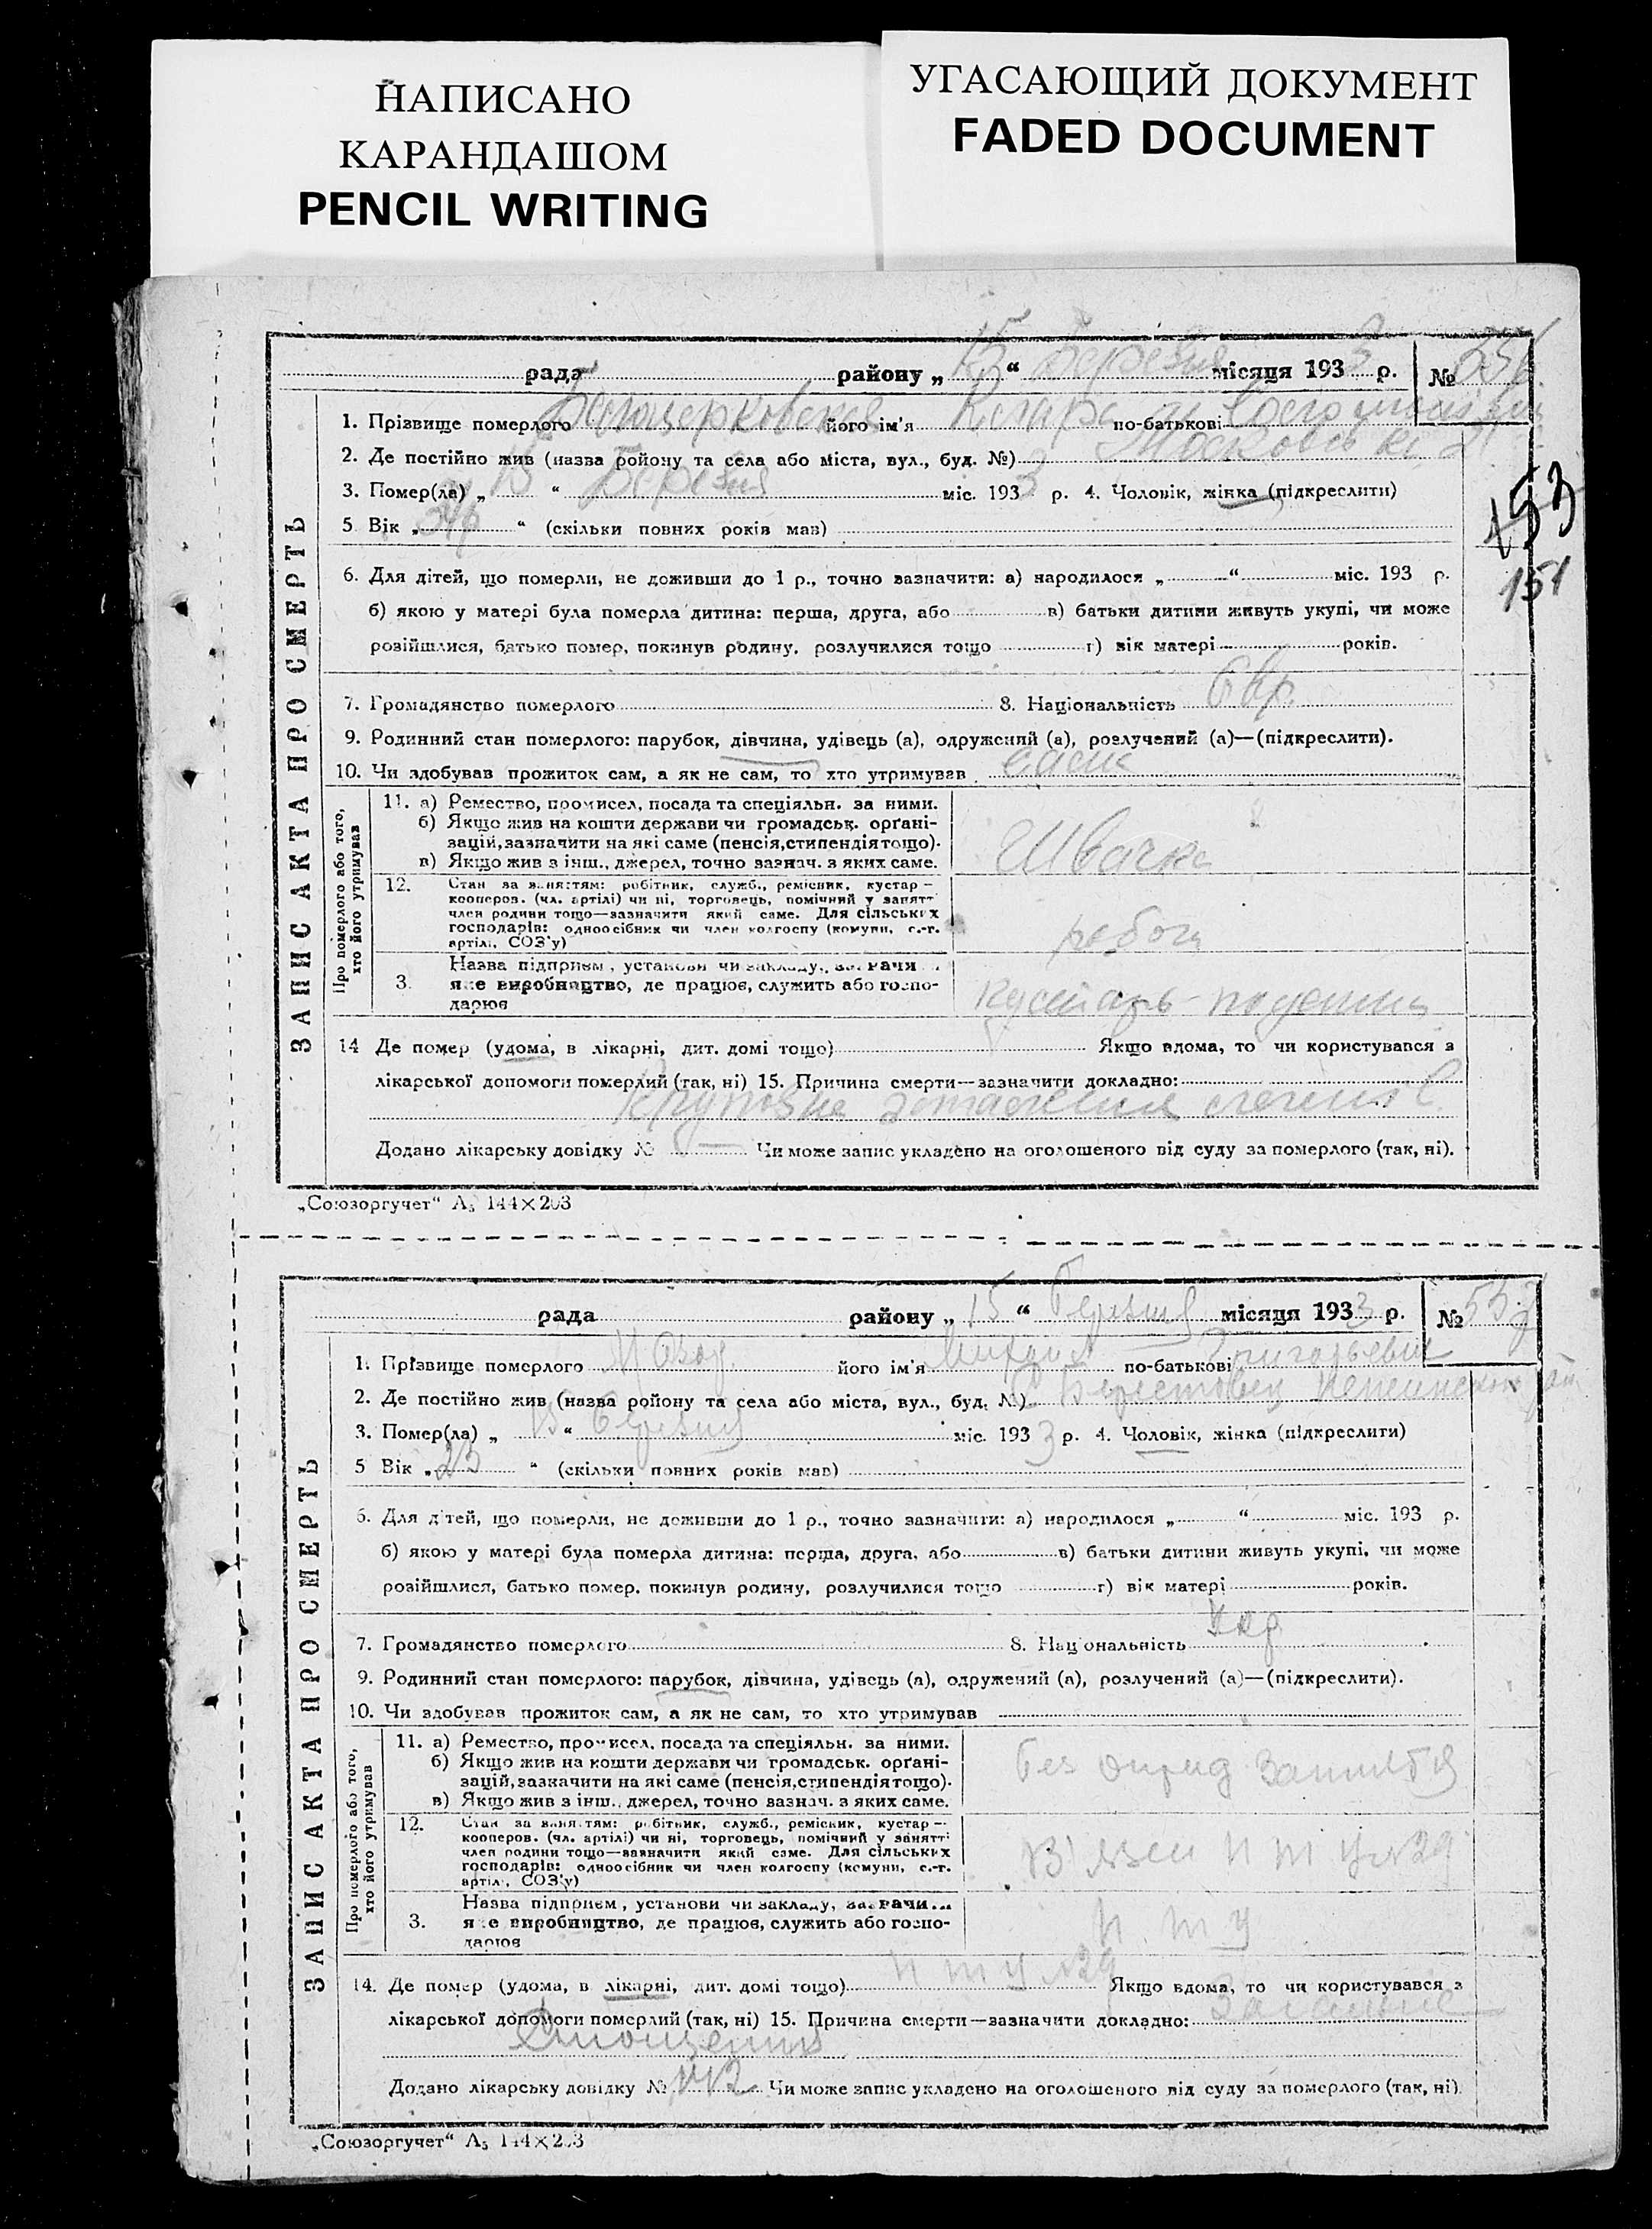 НАПИСАНО
КАРАНДАШОМ
PENCIL WRITING
УГАСАЮЩИЙ ДОКУМЕНТ
FADED DOCUMENT
ЗАПИС АКТА ПРО СМЕРТЬ
рада району „ 15 “ Березня місяця 1933 р. №
1. Прізвище померлого Білоцерковская його ім'я по-батькові
2. Де постійно жив (назва ройону та села або міста, вул., буд. №) Московськ. 21
3. Помер(ла) „ 15 “ Березня міс. 1933 р. 4. Чоловік, жінка (підкреслити)
153
5 Вік „ “ (скільки повних років мав)
151
6. Для дітей, що померли, не доживши до 1 р., точно зазначити: а) народилося „ “ міс. 193 р.
б) якою у матері була померла дитина: перша, друга, або в) батьки дитини живуть укупі, чи може
розійшлися, батько помер, покинув родину, розлучилися тощо г) вік матері років.
7. Громадянство померлого 8. Національність Євр.
9. Родинний стан померлого: парубок, дівчина, удівець (а), одружений (а), розлучений (а)—(підкреслити).
10. Чи здобував прожиток сам, а як не сам, то хто утримував сама
Про померлого або того, хто його утримував
11. а) Ремество, промисел, посада та спеціяльн. за ними.
б) Якщо жив на кошти держави чи громадськ. орґані-
зацій, зазначити на які саме (пенсія, стипендія тощо).
в) Якщо жив з інш., джерел, точно зазнач. з яких саме.
Швачка
12. Стан за заняттям: робітник, служб., ремісник, кустар —
кооперов. (чл. артілі) чи ні, торговець, помічний у занятт
член родини тощо—зазначити який саме. Для сільських
господарів: одноосібник чи член колгоспу (комуни, с.-г.
артілі, СОЗ'у)
робоч
3. Назва підприєм., установи чи закладу, зазначи
яке виробництво, де працює, служить або госпо-
дарює
Кустарь-
14 Де помер (удома, в лікарні, дит. домі тощо) Якщо вдома, то чи користувався з
лікарської допомоги померлий (так, ні) 15. Причина смерти—зазначити докладно:
Крупозне легенів
Додано лікарську довідку № — Чи може запис укладено на оголошеного від суду за померлого (так, ні).
„Союзоргучет“ А₅ 144×203
ЗАПИС АКТА ПРО СМЕРТЬ
рада району „ 15 “ Березня місяця 1933 р. №
1. Прізвище померлого його ім'я Михайло по-батькові Григорьевич
2. Де постійно жив (назва ройону та села або міста, вул., буд. №) Берестовец
3. Помер(ла) „ 13 “ Березня міс. 1933 р. 4. Чоловік, жінка (підкреслити)
5 Вік „ 23 “ (скільки повних років мав)
6. Для дітей, що померли, не доживши до 1 р., точно зазначити: а) народилося „ “ міс. 193 р.
б) якою у матері була померла дитина: перша, друга, або в) батьки дитини живуть укупі, чи може
розійшлися, батько помер, покинув родину, розлучилися тощо г) вік матері років.
7. Громадянство померлого 8. Національність Укр
9. Родинний стан померлого: парубок, дівчина, удівець (а), одружений (а), розлучений (а)—(підкреслити).
10. Чи здобував прожиток сам, а як не сам, то хто утримував
Про померлого або того, хто його утримував
11. а) Ремество, промисел, посада та спеціяльн. за ними.
б) Якщо жив на кошти держави чи громадськ. орґані-
зацій, зазначити на які саме (пенсія, стипендія тощо).
в) Якщо жив з інш., джерел, точно зазнач. з яких саме.
без
12. Стан за заняттям: робітник, служб., ремісник, кустар —
кооперов. (чл. артілі) чи ні, торговець, помічний у занятт
член родини тощо—зазначити який саме. Для сільських
господарів: одноосібник чи член колгоспу (комуни, с.-г.
артілі, СОЗ'у)
В'язен п т у №29
3. Назва підприєм., установи чи закладу, зазначи
яке виробництво, де працює, служить або госпо-
дарює
п. т у
14. Де помер (удома, в лікарні, дит. домі тощо) п т у №29 Якщо вдома, то чи користувався з
лікарської допомоги померлий (так, ні) 15. Причина смерти—зазначити докладно:
Додано лікарську довідку № Чи може запис укладено на оголошеного від суду за померлого (так, ні)
„Союзоргучет“ А₅ 144×203